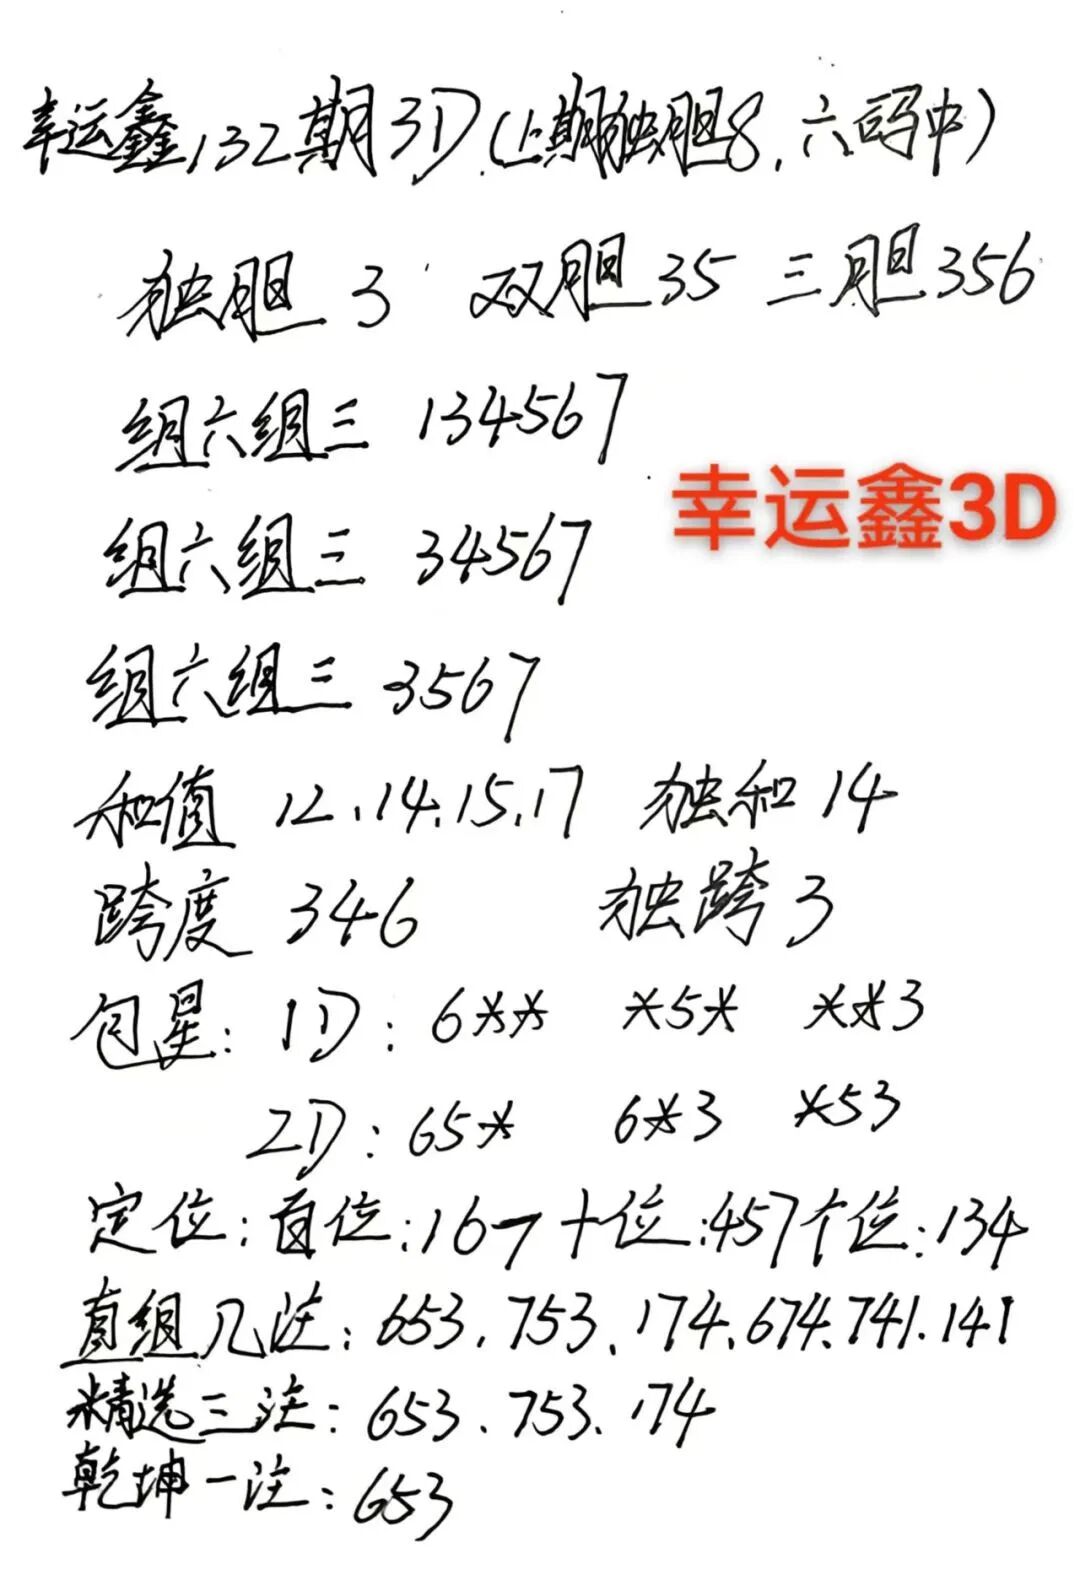 幸运鑫132期3D(上期独胆8.六码中)
独胆 3 双胆35 三胆356
组六组三 134567
幸运鑫3D
组六组三 34567
组六组三 3567
和值 12.14.15.17 独和14
跨度 346 独跨3
包星: 1D: 6** *5* **3
2D: 65* 6*3 *53
定位:百位:167十位:457个位:134
直组几注:653.753.174.674.741.141
精选三注:653.753.174
乾坤一注:653